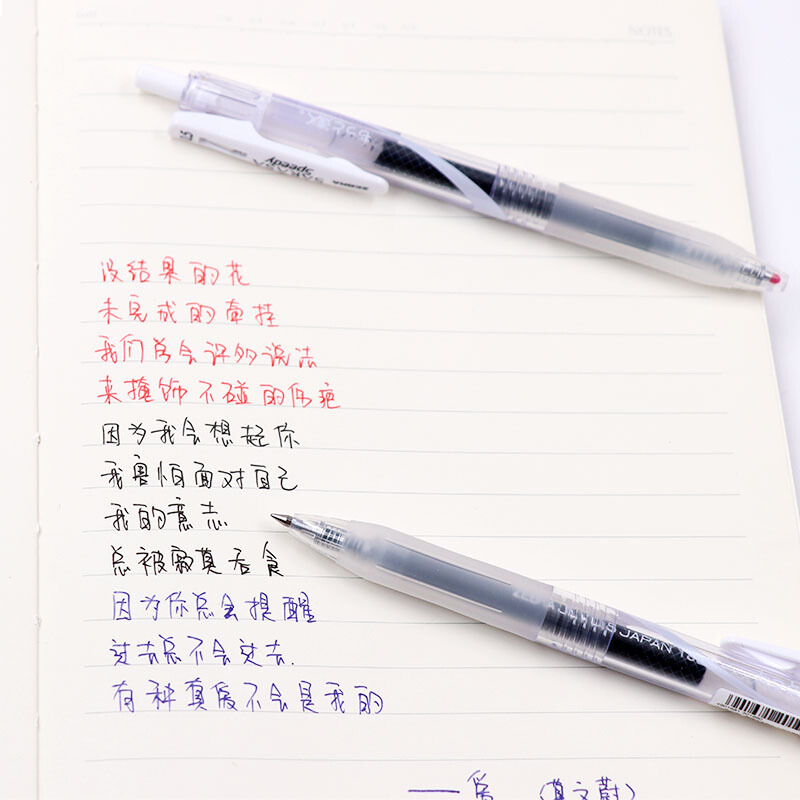 NOTES
SARASA
speedy
ZEBRA
没结果的花
未完成的牵挂
我们学会许多说法
来掩饰不碰的伤疤
因为我会想起你
我害怕面对自己
我的意志
总被寂寞吞食
JAPAN
因为你总会提醒
过去总不会过去.
有种真爱不会是我的
——爱 (莫文蔚)